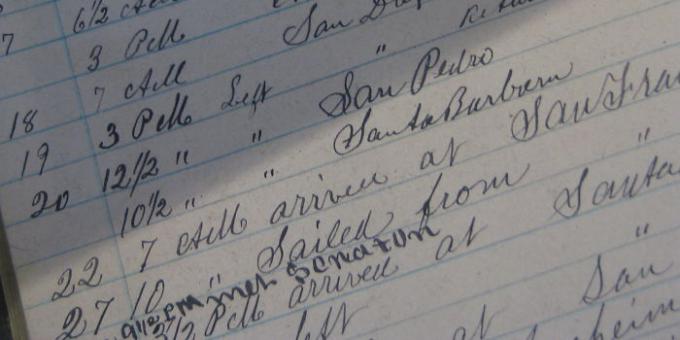 6 1/2 AM
7 3 PM San Die
7 AM " Re
18 3 PM Left San Pedro
19 12 1/2 " " Santa Barbara
20 10 1/2 " "
7 AM arrived at San Fran
22 10 " Sailed from "
9 1/2 pm met Senator
27 2 1/2 PM arrived at Santa
left "
at San